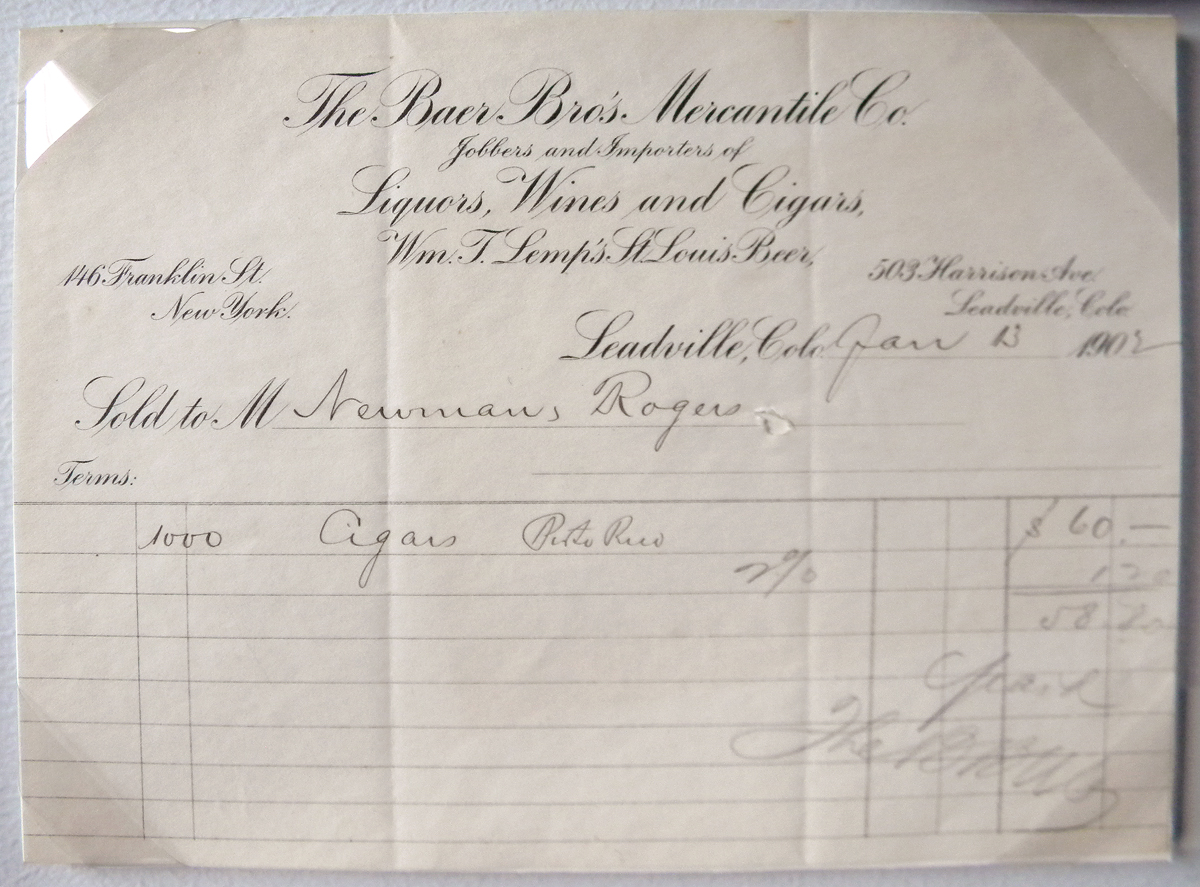 The Baer Bro's Mercantile Co.
Jobbers and Importers of
Liquors, Wines and Cigars,
Wm. T. Lemp's St. Louis Beer,
146 Franklin St.
New York.
503 Harrison Ave.
Leadville, Colo.
Leadville, Colo. Jan 13 1902
Sold to M Newman, Rogers
Terms:
1000 Cigars Porto Rico $ 60.—
2% 1 20
58 80
Paid
The